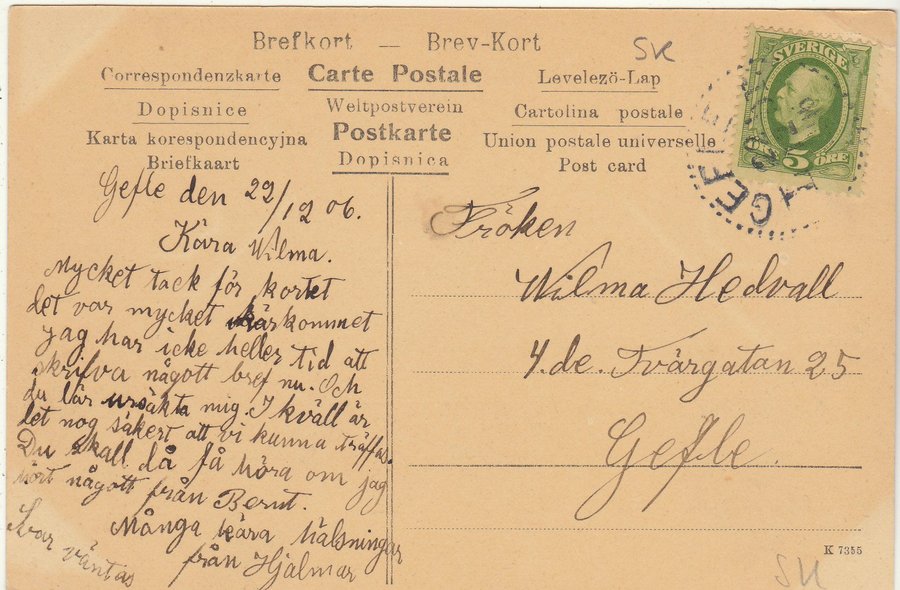 Brefkort — Brev-Kort
Correspondenzkarte Carte Postale Levelező-Lap
Dopisnice Weltpostverein Cartolina postale
Karta korespondencyjna Postkarte Union postale universelle
Briefkaart Dopisnica Post card
SK
SVERIGE
5 ÖRE
GEFLE
Gefle den 22/12 06.
Kära Wilma.
Mycket tack för kortet
det var mycket kärkommet
jag har icke heller tid att
skrifva någott bref nu. Och
du lär ursäkta mig. I kväll är
det nog säkert att vi kunna träffas.
Du skall då få höra om jag
hört någott från Bernt.
Många kära hälsningar
från Hjalmar
Svar väntas
Fröken
Wilma Hedvall
4.de. Tvärgatan 25
Gefle.
K 7355